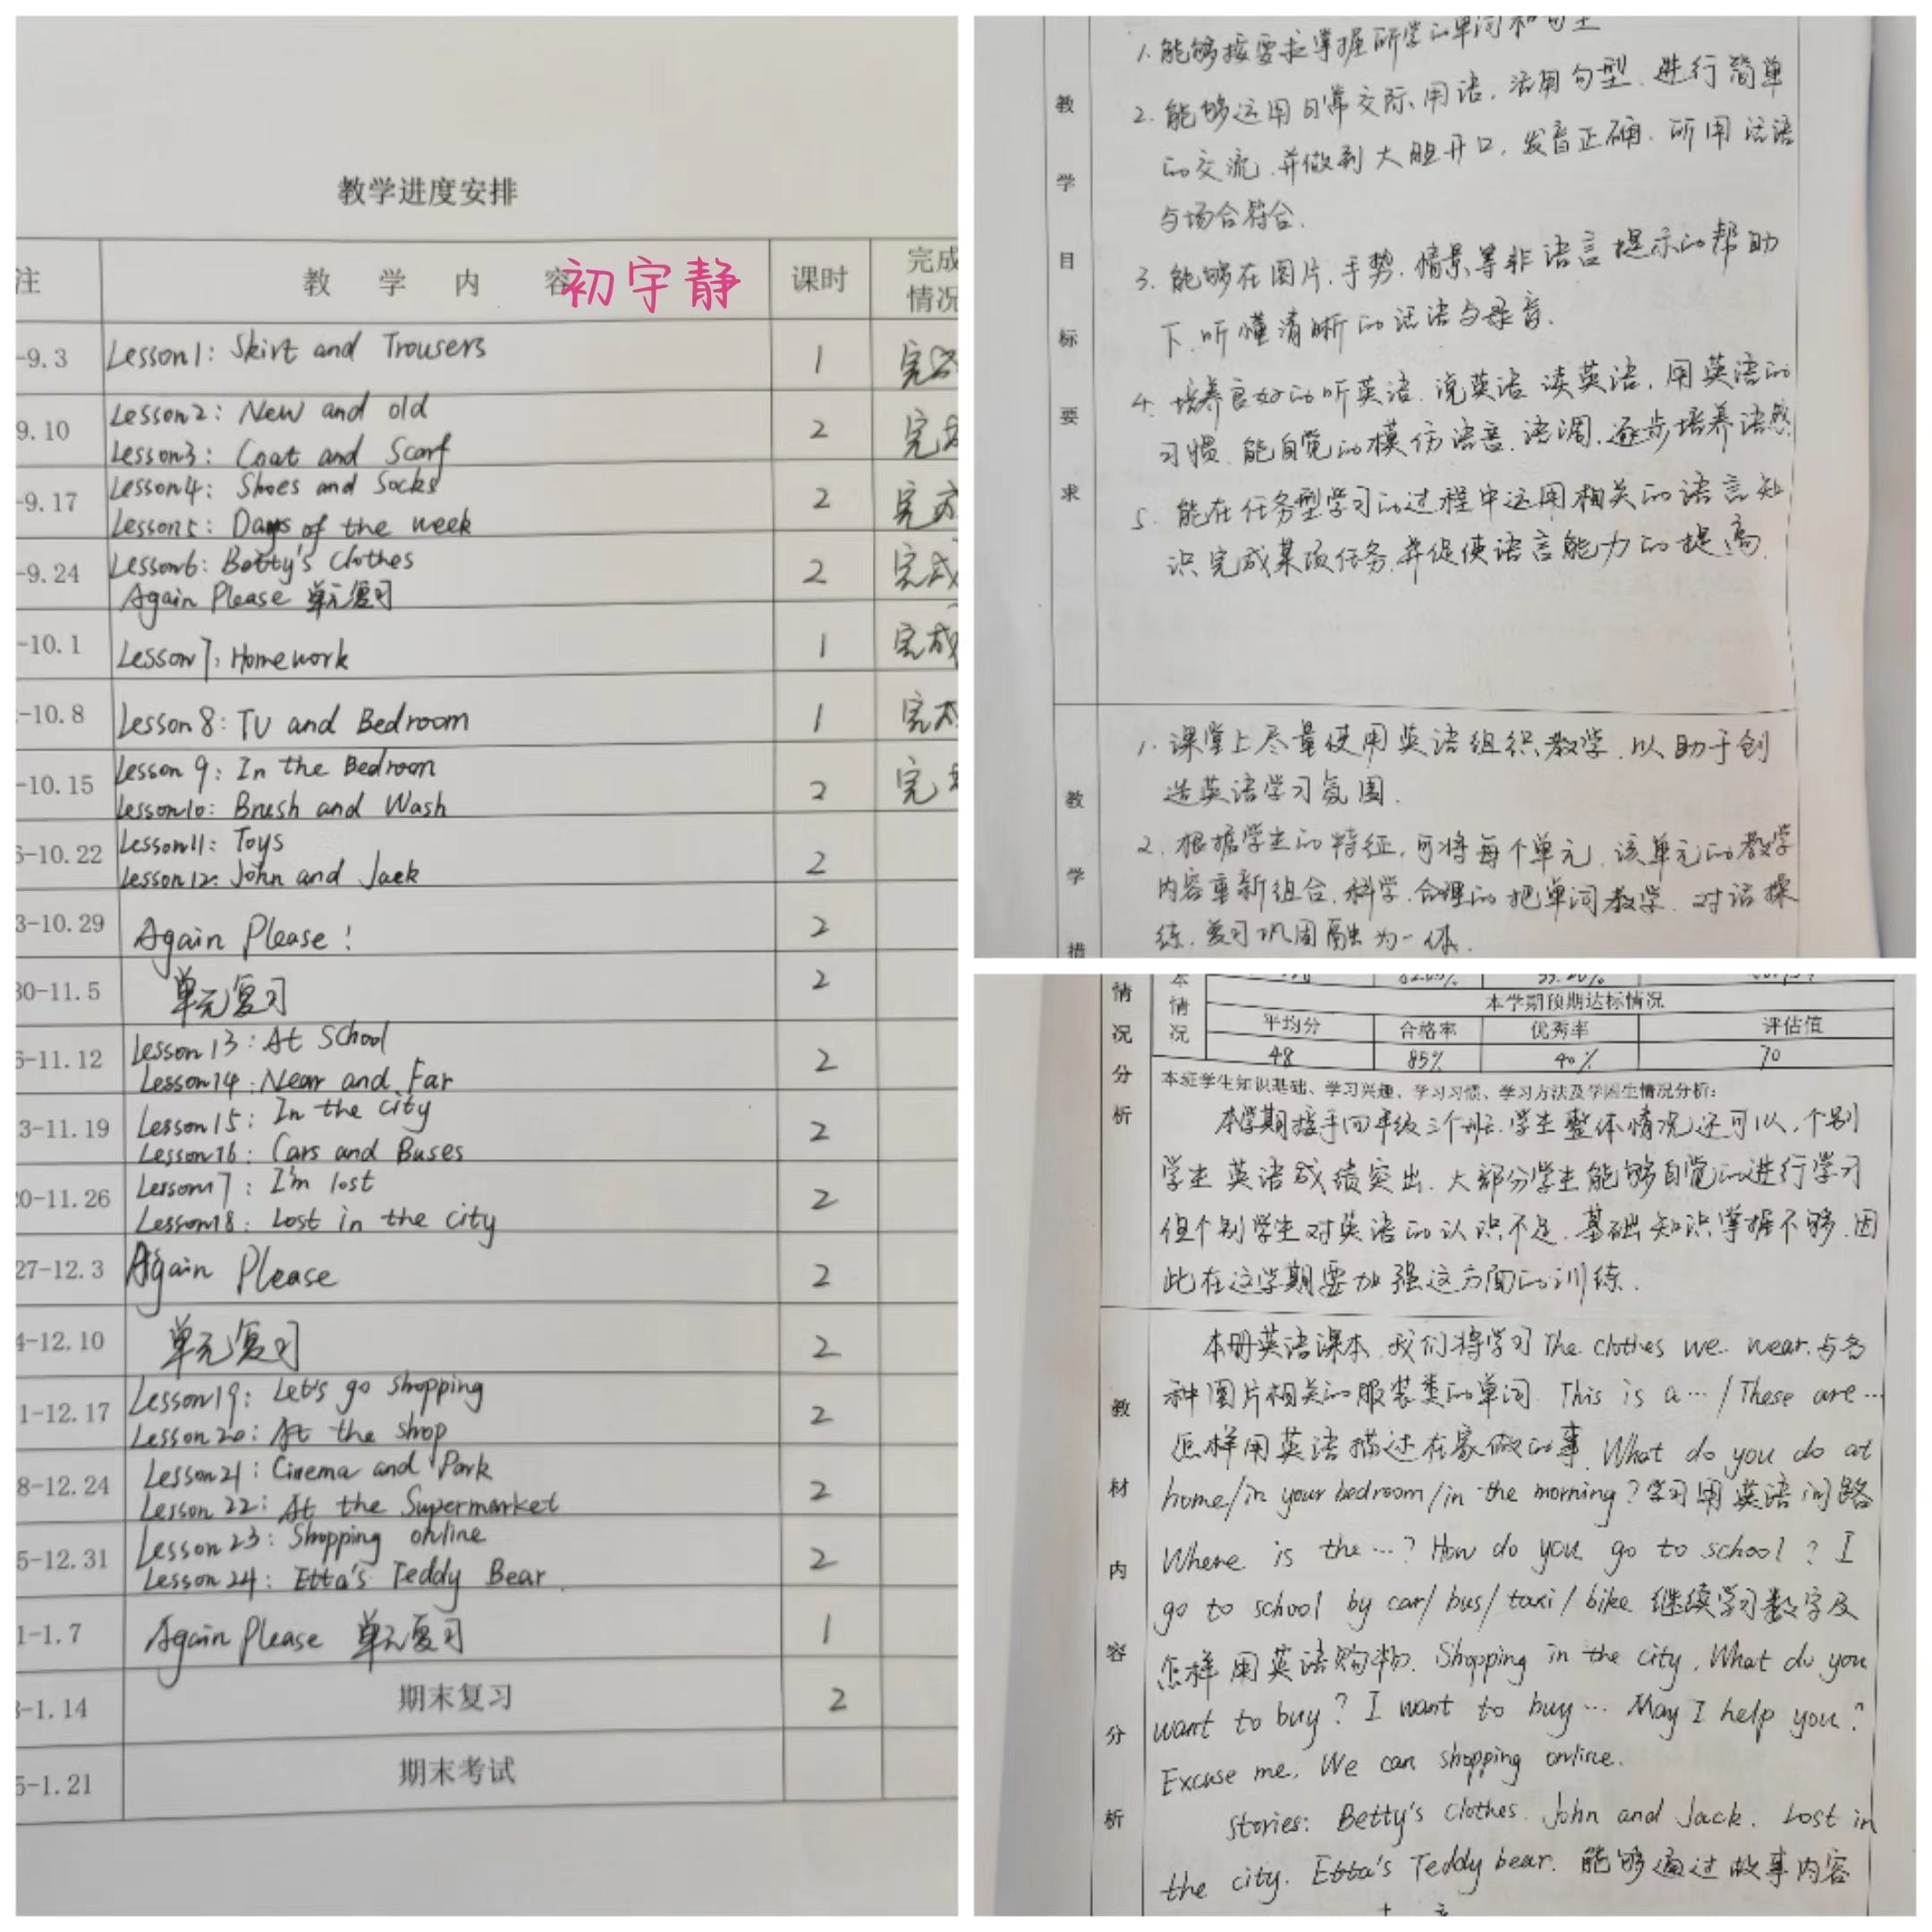 教学进度安排
注 教学内容 课时 完成情况
初宇静
-9.3 Lesson1: Skirt and Trousers 1 完成
9.10 Lesson2: New and old
Lesson3: Coat and Scarf 2 完成
-9.17 Lesson4: Shoes and Socks
Lesson5: Days of the week 2 完成
-9.24 Lesson6: Betty's clothes
Again Please 单元复习 2 完成
-10.1 Lesson7: Homework 1 完成
-10.8 Lesson 8: TV and Bedroom 1 完成
-10.15 Lesson 9: In the Bedroom
Lesson10: Brush and Wash 2 完
-10.22 Lesson11: Toys
Lesson12: John and Jack 2
3-10.29 Again Please! 2
30-11.5 单元复习 2
-11.12 Lesson 13: At School
Lesson14: Near and Far 2
3-11.19 Lesson15: In the city
Lesson16: Cars and Buses 2
20-11.26 Lesson17: I'm lost
Lesson18: Lost in the city 2
27-12.3 Again Please 2
4-12.10 单元复习 2
1-12.17 Lesson19: Let's go shopping
Lesson20: At the shop 2
8-12.24 Lesson21: Cinema and Park
Lesson 22: At the Supermarket 2
5-12.31 Lesson 23: Shopping online
Lesson 24: Etta's Teddy Bear. 2
1-1.7 Again Please 单元复习 1
-1.14 期末复习 2
5-1.21 期末考试
教学目标要求
1.能够按要求掌握所学的单词和句型
2.能够运用日常交际用语,活用句型,进行简单
的交流,并做到大胆开口,发音正确.所用话语
与场合符合.
3.能够在图片,手势,情景等非语言提示的帮助
下,听懂清晰的话语与录音.
4.培养良好的听英语,说英语,读英语,用英语的
习惯,能自觉的模仿语音,语调,逐步培养语感
5.能在任务型学习的过程中运用相关的语言知
识完成某项任务,并促使语言能力的提高.
教学措
1.课堂上尽量使用英语组织教学,以助于创
造英语学习氛围.
2.根据学生的特征,可将每个单元,该单元的教学
内容重新组合,科学,合理的把单词教学,对话操
练,复习巩固融为一体.
情况分析
本情况
本学期预期达标情况
平均分 合格率 优秀率 评估值
48 85% 40% 70
本班学生知识基础、学习兴趣、学习习惯、学习方法及学困生情况分析:
本学期接手四年级三个班,学生整体情况还可以,个别
学生英语成绩突出,大部分学生能够自觉的进行学习
但个别学生对英语的认识不足,基础知识掌握不够,因
此在这学期要加强这方面的训练.
教材内容分析
本册英语课本,我们将学习The clothes we wear,与各
种图片相关的服装类的单词. This is a…/These are…
怎样用英语描述在家做的事. What do you do at
home/in your bedroom/in the morning?学习用英语问路
Where is the…? How do you go to school? I
go to school by car/bus/taxi/bike 继续学习数字及
怎样用英语购物. Shopping in the city, What do you
want to buy? I want to buy… May I help you?
Excuse me, We can shopping online.
Stories: Betty's clothes. John and Jack. Lost in
the city. Etta's Teddy bear. 能够通过故事内容